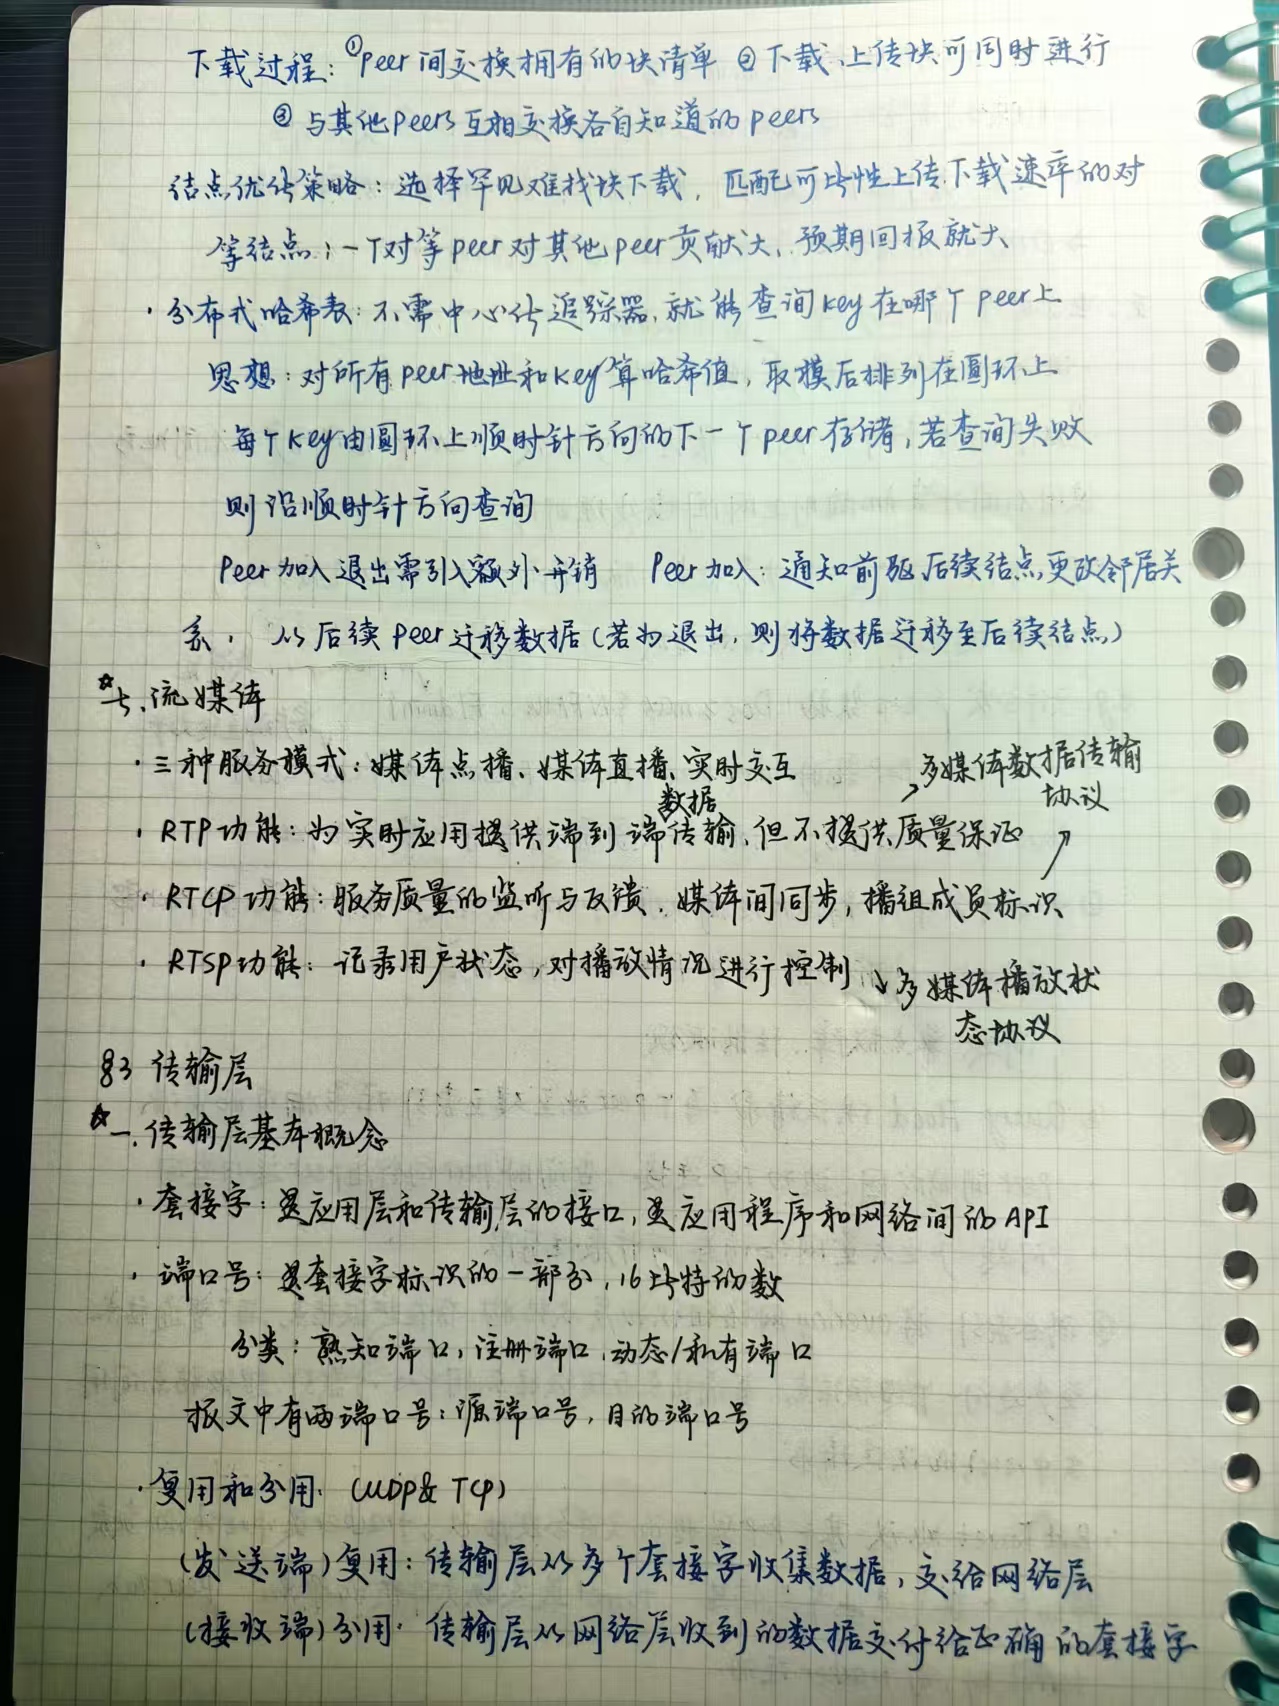 下载过程：①Peer间交换拥有的块清单 ②下载、上传块可同时进行
③与其他Peers互相交换各自知道的peers
结点优化策略：选择罕见难找块下载，匹配可比性上传、下载速率的对
等结点；一个对等peer对其他peer贡献大，预期回报就大
·分布式哈希表：不需中心化追踪器，就能查询key在哪个peer上
思想：对所有peer地址和key算哈希值，取模后排列在圆环上
每个key由圆环上顺时针方向的下一个peer存储，若查询失败
则沿顺时针方向查询
Peer加入退出需引入额外开销 Peer加入：通知前驱后续结点更改邻居关
系，从后续Peer迁移数据（若为退出，则将数据迁移至后续结点）
☆七、流媒体
·三种服务模式：媒体点播、媒体直播、实时交互
↗多媒体数据传输协议
·RTP功能：为实时应用提供端到端数据传输，但不提供质量保证
·RTCP功能：服务质量的监听与反馈，媒体间同步，播组成员标识
·RTSP功能：记录用户状态，对播放情况进行控制 ↘多媒体播放状
态协议
§3 传输层
☆一、传输层基本概念
·套接字：是应用层和传输层的接口，是应用程序和网络间的API
·端口号：是套接字标识的一部分，16比特的数
分类：熟知端口，注册端口，动态/私有端口
报文中有两端口号：源端口号，目的端口号
·复用和分用.（UDP& TCP）
（发送端）复用：传输层从多个套接字收集数据，交给网络层
（接收端）分用：传输层从网络层收到的数据交付给正确的套接字